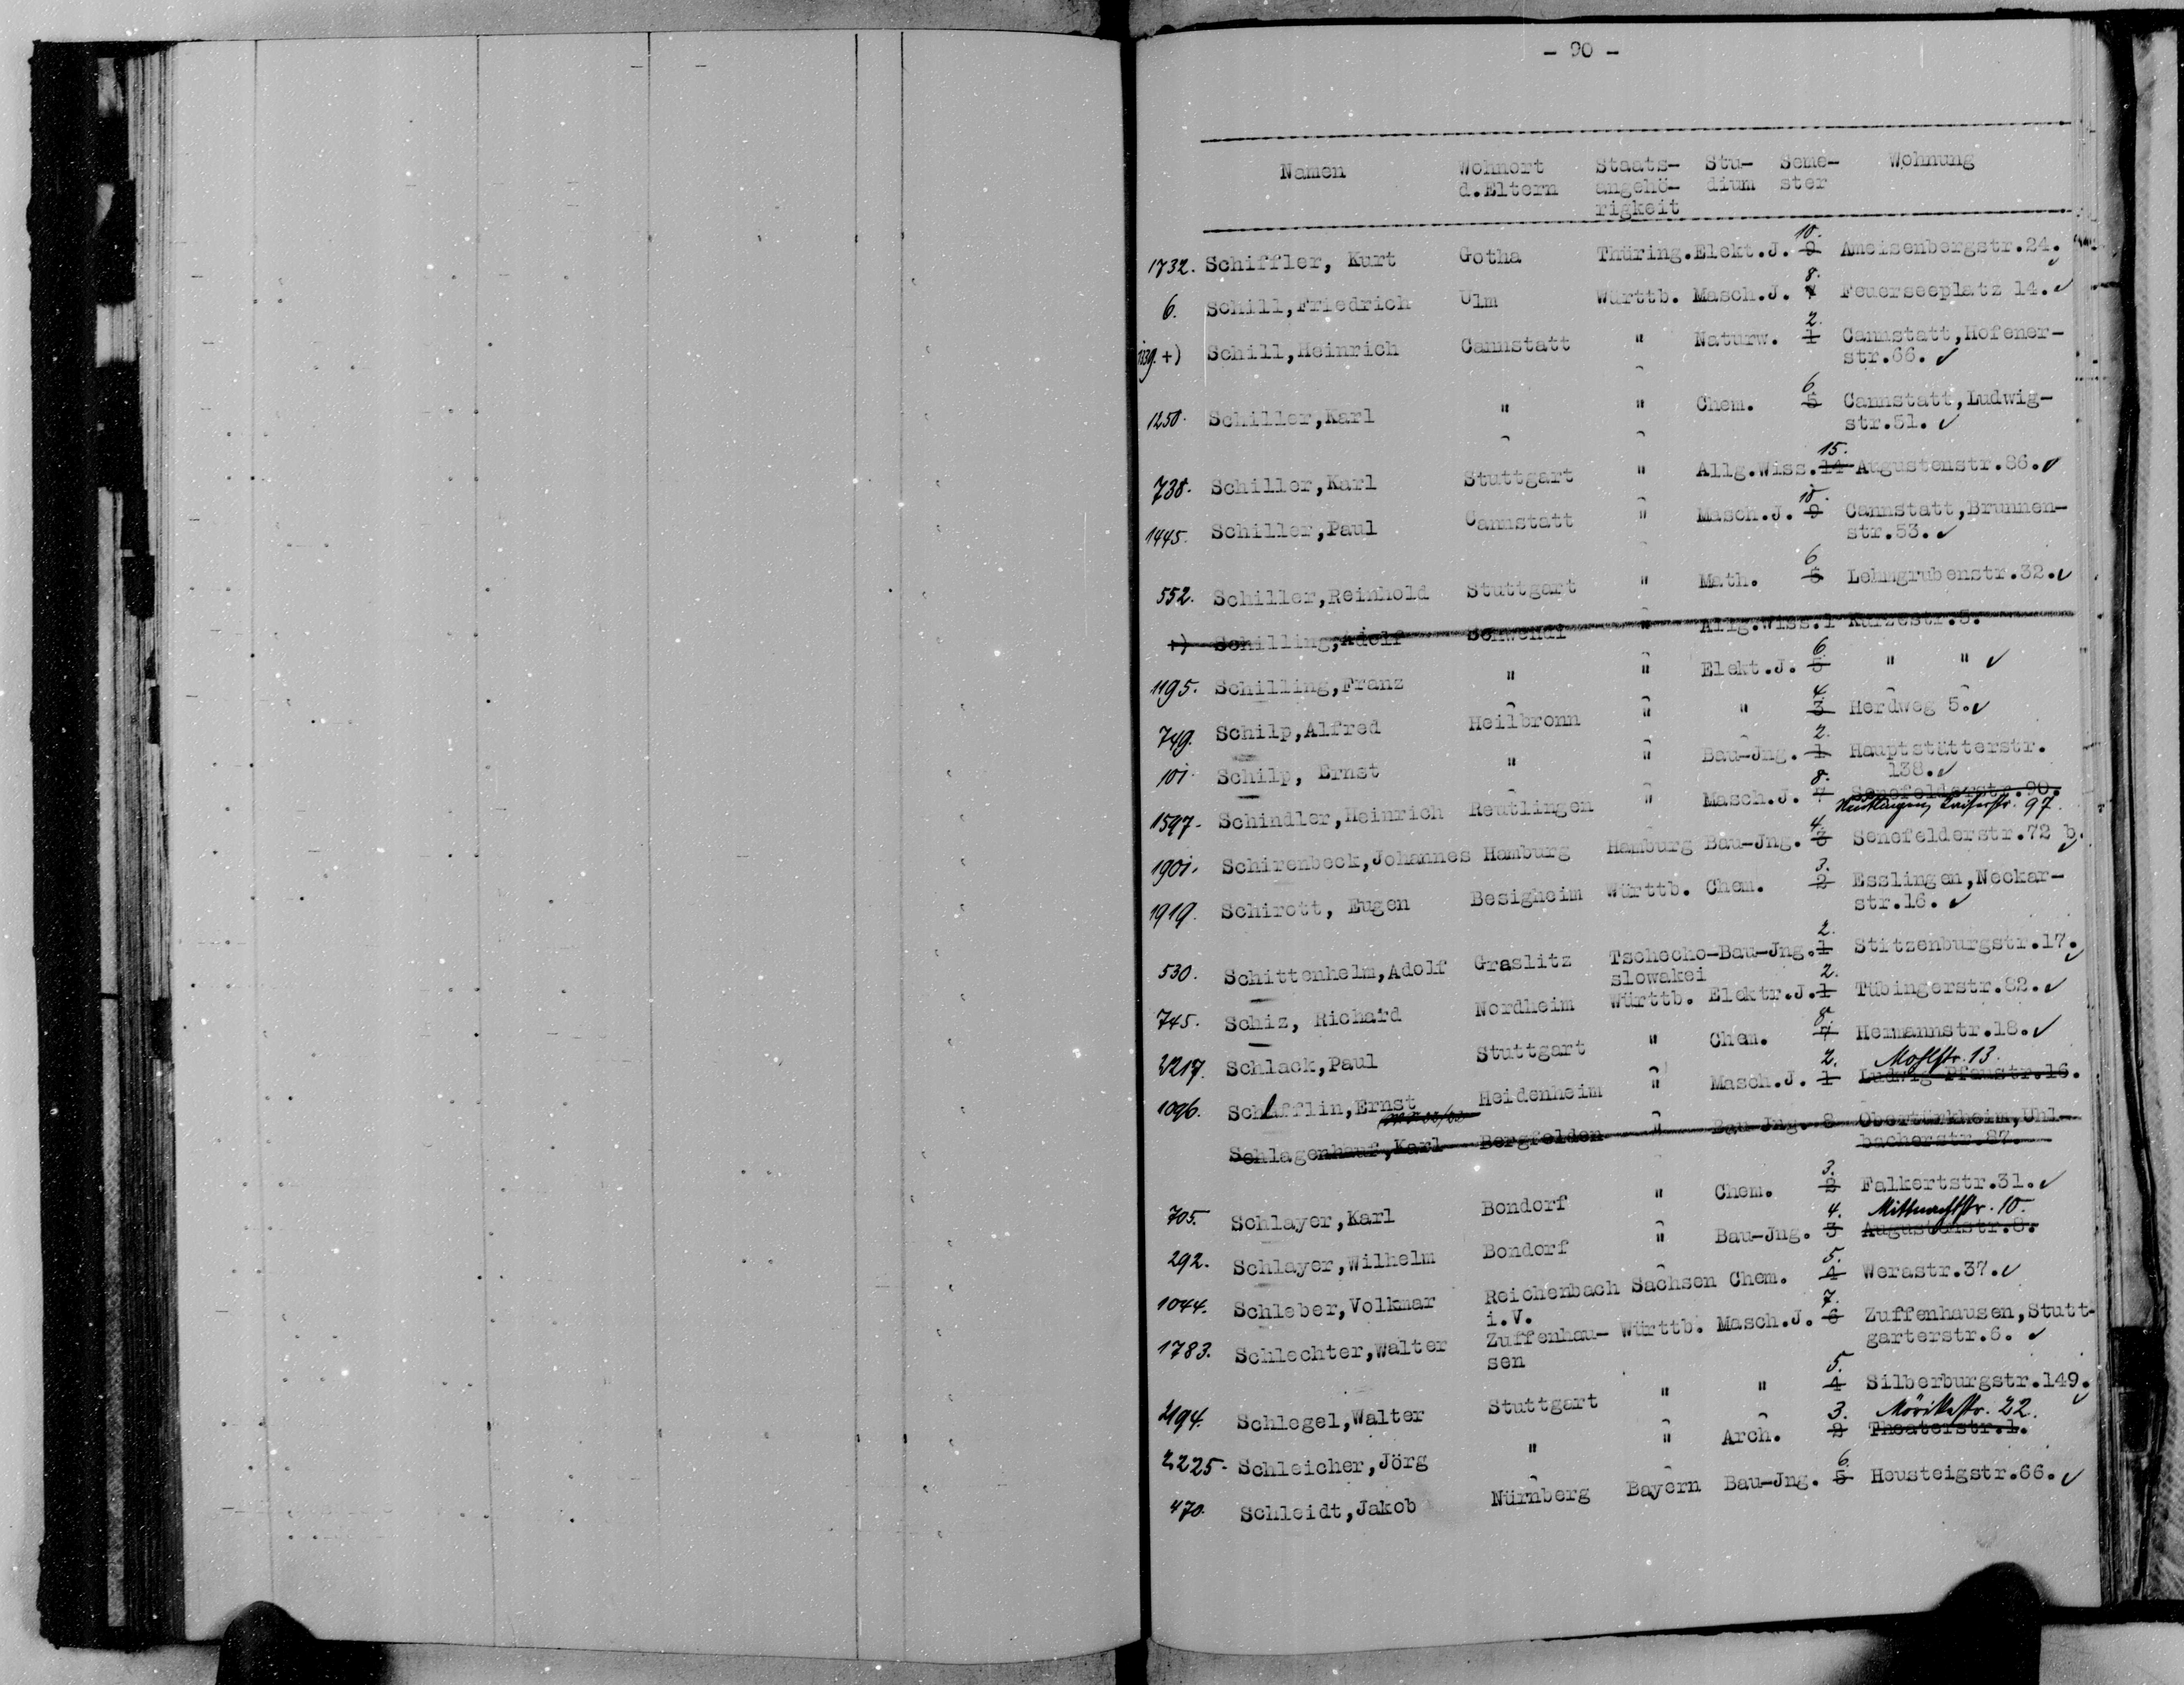 - 90 -
Namen Wohnort Staats- Stu- Seme- Wohnung
d.Eltern angehö- dium ster
rigkeit
10.
1732. Schiffler, Kurt Gotha Thüring. Elekt.J. 9 Ameisenbergstr.24.
8.
6. Schill,Friedrich Ulm Württb. Masch.J. 7 Feuerseeplatz 14.
2.
+) Schill,Heinrich Cannstatt " Naturw. 1 Cannstatt,Hofener-
str.66.
6
1250. Schiller,Karl " " Chem. 5 Cannstatt,Ludwig-
str.51.
15.
738. Schiller,Karl Stuttgart " Allg.Wiss.14 Augustenstr.86.
10.
1445. Schiller,Paul Cannstatt " Masch.J. 9 Cannstatt,Brunnen-
str.53.
6
552. Schiller,Reinhold Stuttgart " Math. 5 Lehmgrubenstr.32.
+) Schilling,Adolf Schwendi " Allg.Wiss.1 Kurzestr.5.
6.
1195. Schilling,Franz " " Elekt.J. 5 " "
4.
749. Schilp,Alfred Heilbronn " " 3 Herdweg 5.
2.
101. Schilp, Ernst " " Bau-Jng. 1 Hauptstätterstr.
138.
8.
1597. Schindler,Heinrich Reutlingen " Masch.J. 7 Senefelderstr.90.
Reutlingen, Kaiserstr. 97.
4.
1901. Schirenbeck,Johannes Hamburg Hamburg Bau-Jng. 3 Senefelderstr.72 b.
3.
1919. Schirott, Eugen Besigheim Württb. Chem. 2 Esslingen,Neckar-
str.16.
2.
530. Schittenhelm,Adolf Graslitz Tschecho-Bau-Jng.1 Stitzenburgstr.17.
slowakei
2.
745. Schiz, Richard Nordheim Württb. Elektr.J.1 Tübingerstr.82.
8.
2217. Schlack,Paul Stuttgart " Chem. 7 Hermannstr.18.
2. Mohlstr. 13.
1096. Schlafflin,Ernst Heidenheim " Masch.J. 1 Ludwig Pfaustr.16.
Schlagenhauf,Karl Bergfelden " Bau-Jng. 8 Obertürkheim,Uhl-
bacherstr.87.
3.
705. Schlayer,Karl Bondorf " Chem. 2 Falkertstr.31.
4. Mittnachtstr. 10.
292. Schlayer,Wilhelm Bondorf " Bau-Jng. 3 Augustenstr.8.
5.
1044. Schleber,Volkmar Reichenbach Sachsen Chem. 4 Werastr.37.
i.V.
7.
1783. Schlechter,Walter Zuffenhau- Württb. Masch.J. 6 Zuffenhausen,Stutt-
sen garterstr.6.
5.
2194. Schlegel,Walter Stuttgart " " 4 Silberburgstr.149.
3. Mörikestr. 22.
2225. Schleicher,Jörg " " Arch. 2 Theaterstr.1.
6.
470. Schleidt,Jakob Nürnberg Bayern Bau-Jng. 5 Heusteigstr.66.